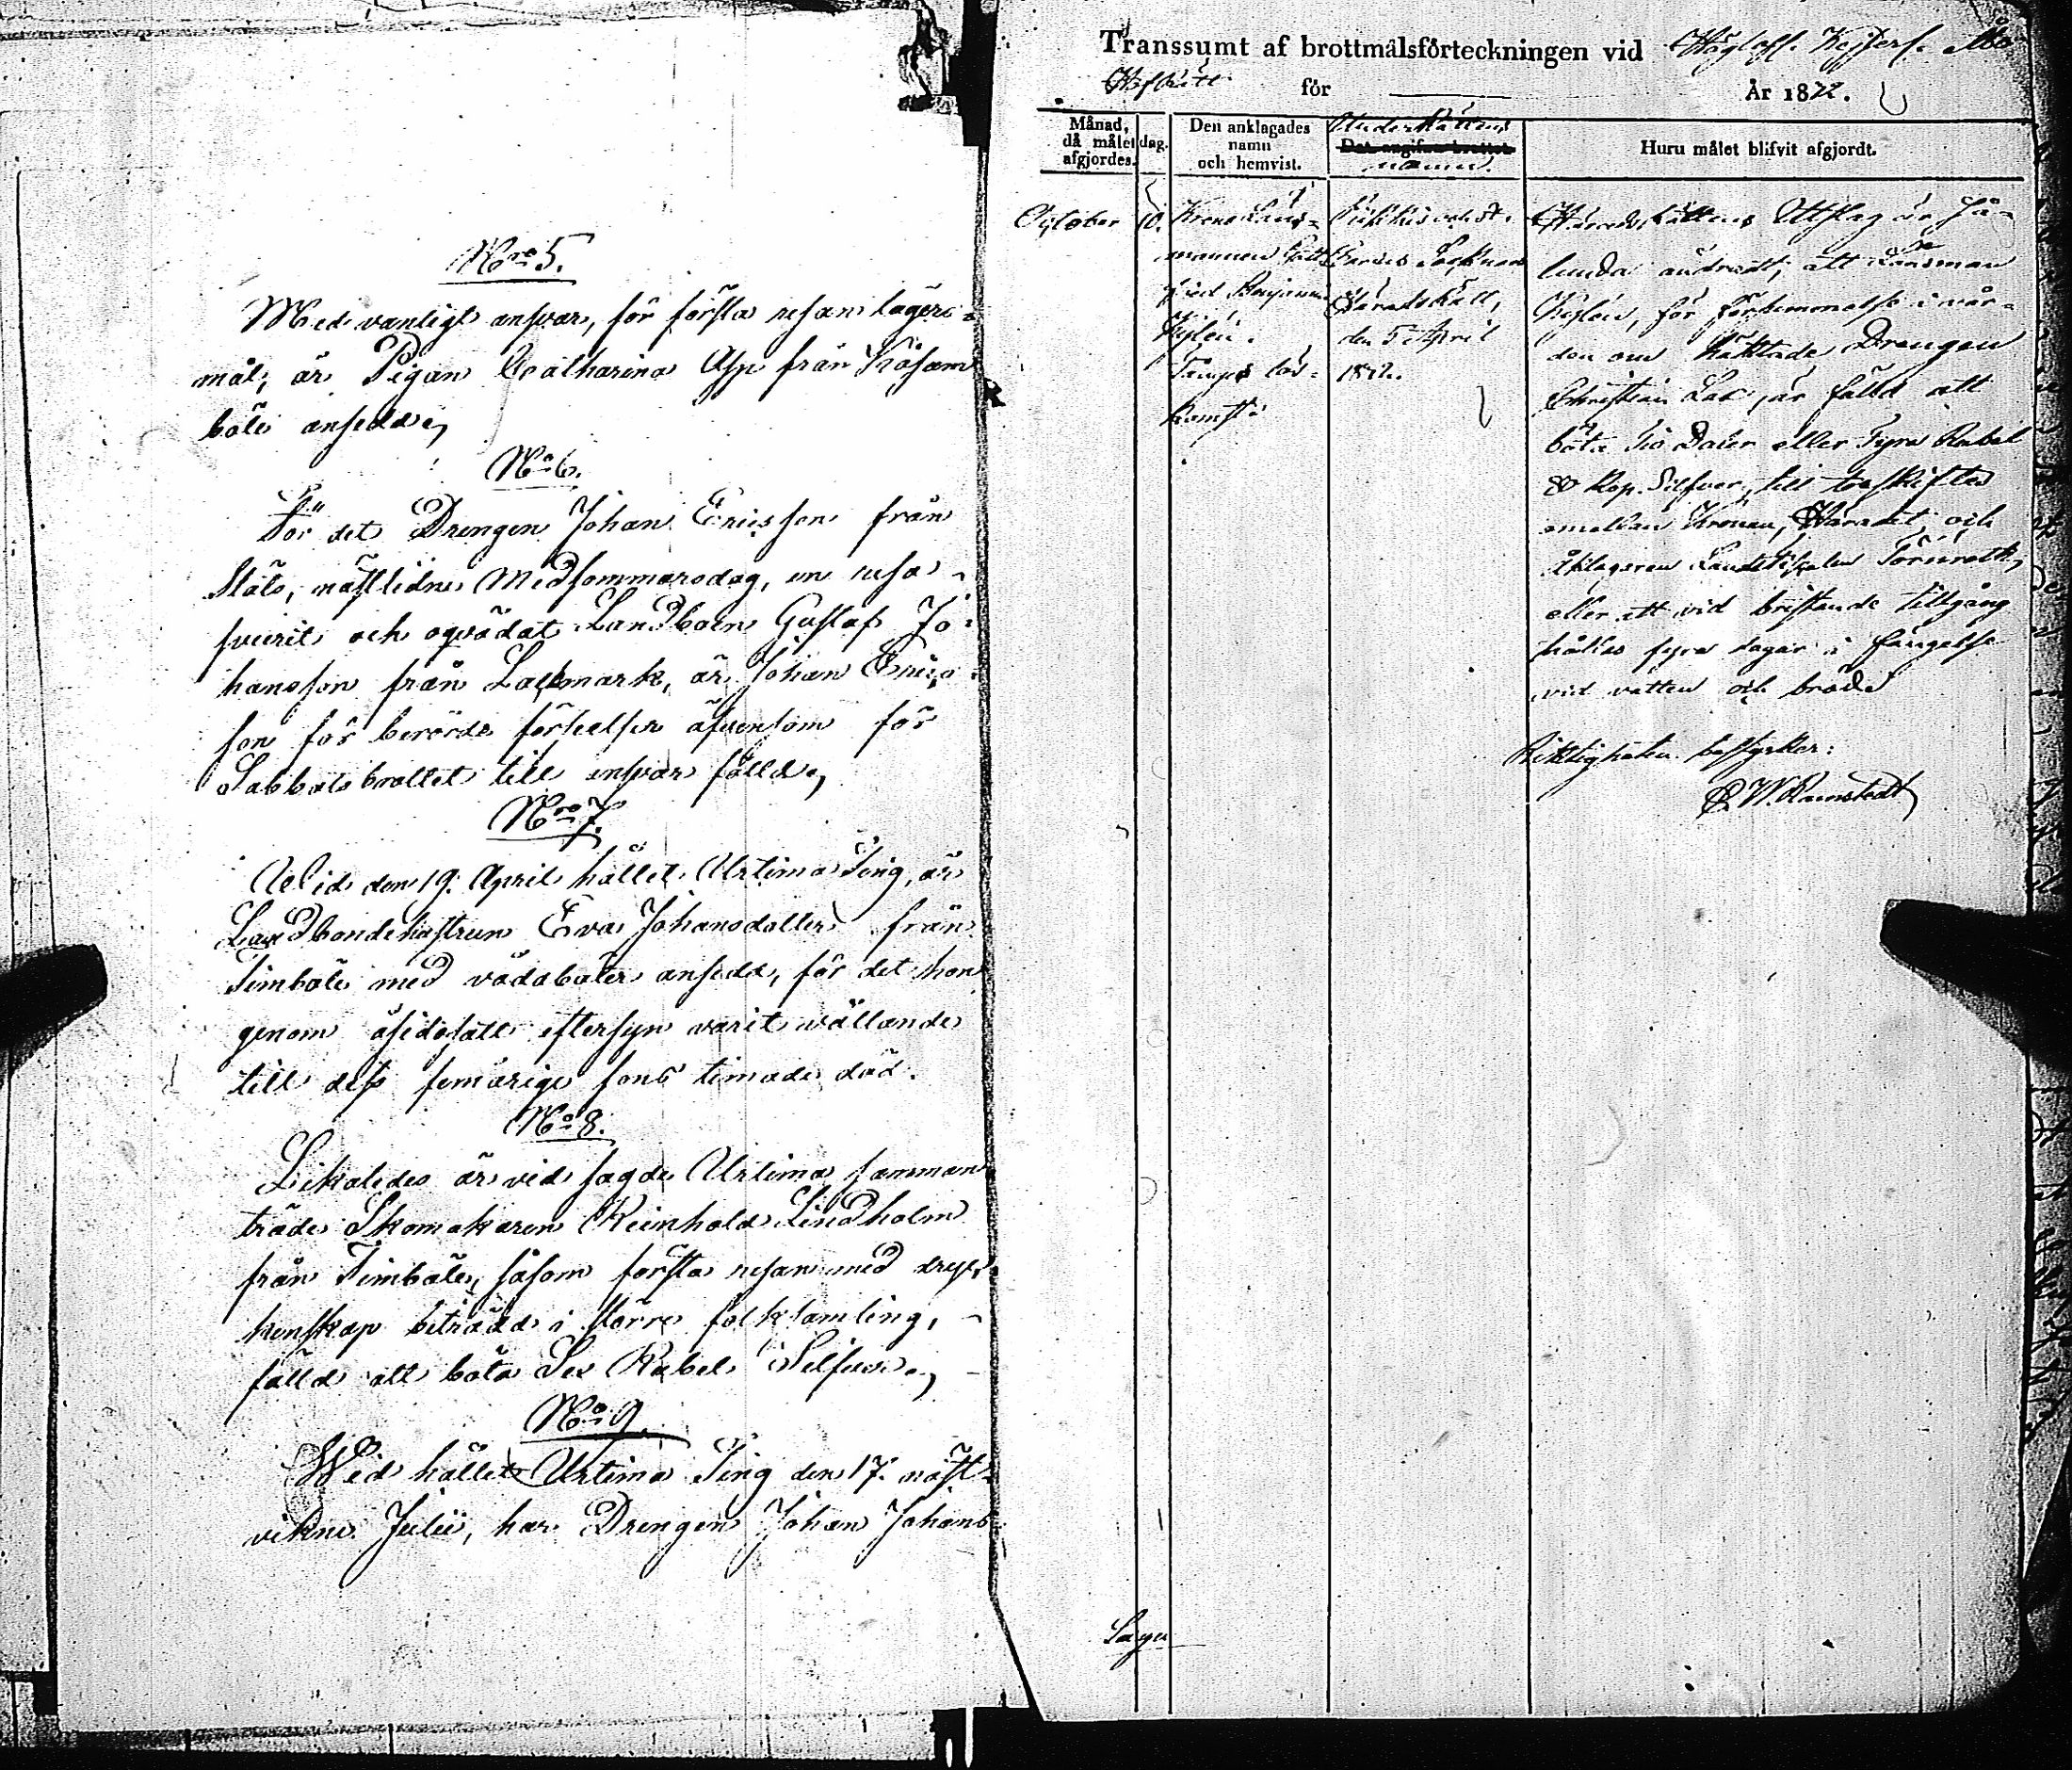 Nro 5.
Med vanligt ansvar, för första resan lägers=
mål, är Pigan Catharina Asp från Kåsam
böle ansedd,
No 6.
För det Drengen Johan Ericsson från
Näs, nästlidne Midsommarsdag, en resa
svurit och oqvädat Landboen Gustaf Jo=
hansson från Lappmark, är Johan Erics=
son för berörde förseelser äfvensom för
Sabbatsbrottet till ansvar fälld,
Nro 7.
Wid den 19. April hållet Urtima Ting, är
Landbondehustrun Eva Johansdotter från
Simböle med vådaböter ansedd, för det hon
genom åsidosatt eftersyn varit wållande
till dess femårige sons timade död.
No 8.
Likaledes är vid sagde Urtima samman
träde Skomakaren Reinhold Lindholm
från Timböle, såsom första resan med dryc
kenskap beträdd i större folksamling,
fälld att böta Sex Rubel Silfver,
No 9.
Wid hållet Urtima Ting den 17. näst=
vikne Julii, har Drengen Johan Johans
Transsumt af brottmålsförteckningen vid Högloft. Kejserl. Åbo
Hofrätt för År 1872.
Månad, då målet afgjordes. dag.
Den anklagades namn och hemvist.
Underrättens namn.
Huru målet blifvit afgjordt.
October 10.
Krono Läns=
mannen Gott
fried Benjamin
Kjslén.
Pikkis och St.
Karins Socknars
Häradsrätt,
den 5 April
1872.
Häradsrättens Utslag är så=
lunda ändradt, att Länsman
för försummelse i vår=
den om häktade Drengen
Christian är fälld att
böta Tio Daler eller Fyra Rubel
80 Kop. Silfver, till treskiftes
emellan Kronan, Häradet och
åklagaren Landtfiskalen Törnroth,
eller att vid bristande tillgång
hållas fyra dagar i fängelse
vid vatten och bröd.
Riktigheten bestyrker:
W. Ramstedt